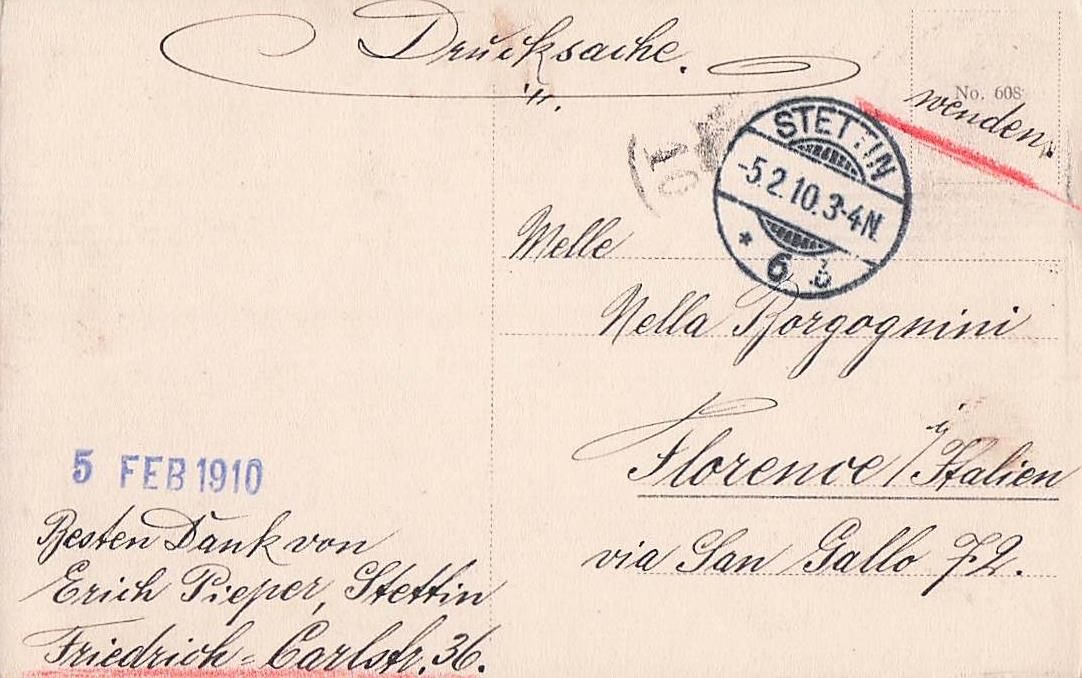 Drucksache.
No. 608
wenden.
STETTIN
-5.2.10.3-4N.
* 6
Melle
Nella Borgognini
Florence / Italien
via San Gallo 72.
5 FEB 1910
Besten Dank von
Erich Pieper, Stettin
Friedrich-Carlstr. 36.